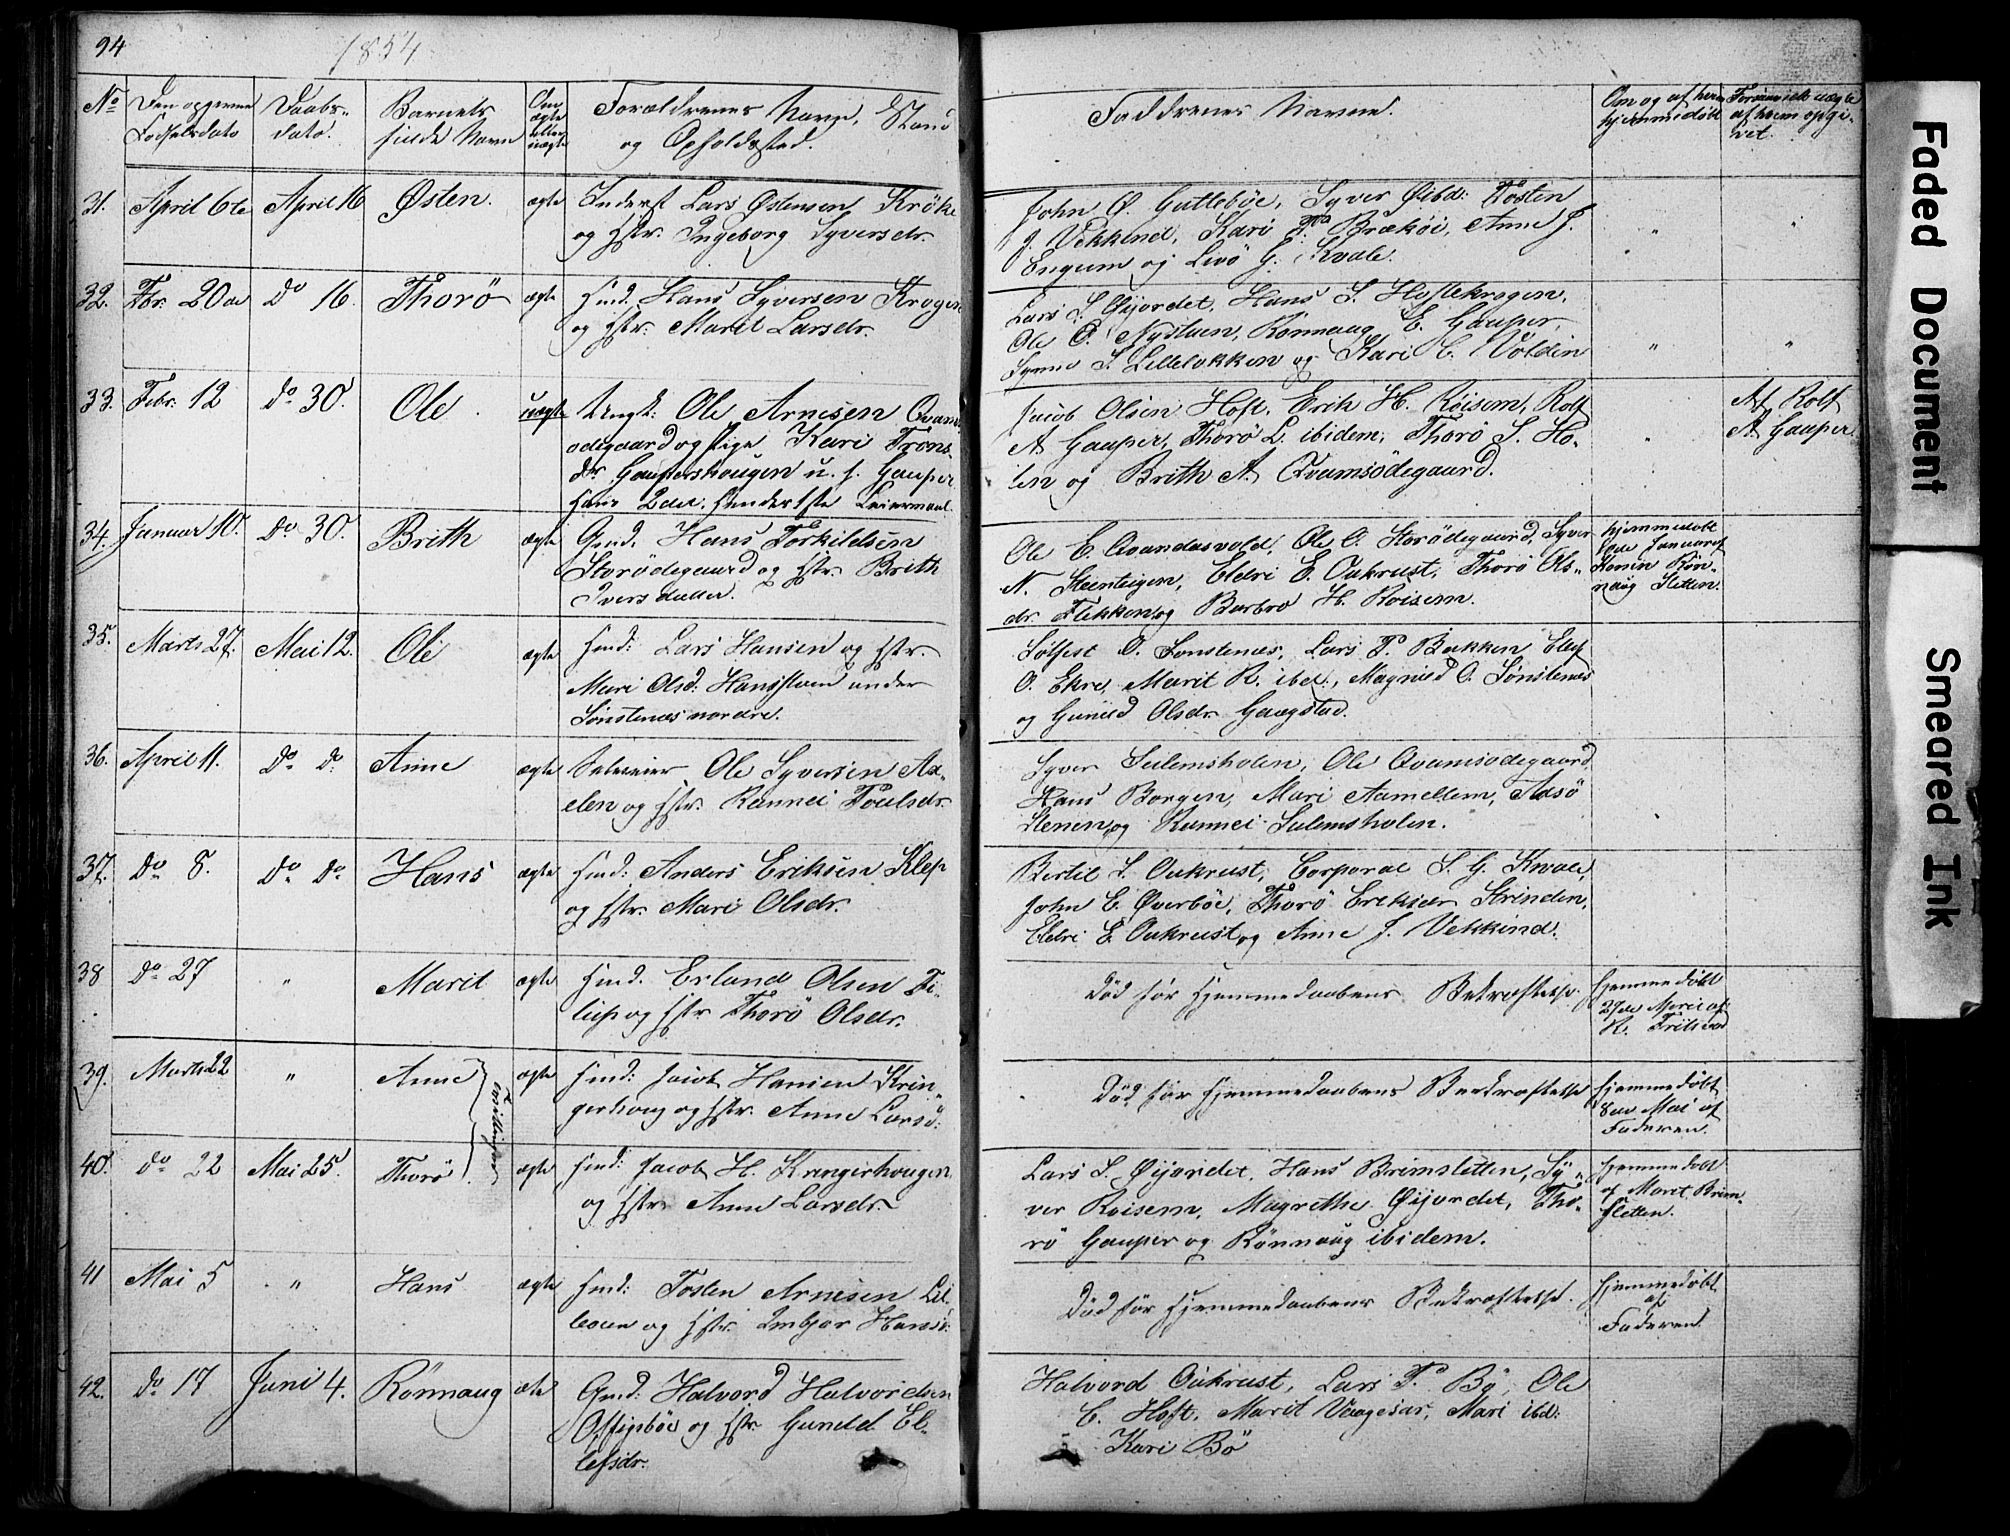 94
1854
No
Den opgevne
Fødselsdato
Daabs-
dato.
Barnets
fulde Navn
Om
ægte
eller
uægte
Forældrenes Navn, Stand
og Opholdssted.
Faddrenes Navne.
Om og af hvem
hjemmedøbt
af hvem opgi-
vet.
31. April 6te April 16 Østen. ægte Inderst Lars Østensen Kröke
og Hstr. Ingeborg Syversdr.
John O. Guttebøe, Syver Ø ibd: Tosten
J. Vekkind, Kari Brækøi, Anne J.
Engum og Livö G. Kvale.
32. Fbr. 20de Do 16. Thorö ægte Hmd. Hans Syversen Krogen
og Hstr: Marit Larsdr.
Lars S. Øijordet, Hans S. Hoftekrogen,
Ole O. Nystuen, Rönnaug E. Gauper,
Synne S. Lillelökken og Kari C. Voldin
33. Febr: 12 do 30. Ole uægte Ungk: Ole Arnesen Qvams
ödegaard og Pige Kari Trons-
dr. Gauperhougen u. f. Gauper
Hans 2det, Hendes 1ste Leiermaal.
Jacob Olsen Hoft, Erik H. Röisem, Rolf
A. Gauper, Thorö L. ibidem, Thorö S. Ho-
len og Brith A. Qvamsödegaard.
Af Rolf
A. Gauper
34. Januar 10. Do 30. Brith ægte Gmd. Hans Torkildsen
Storödegaard og Hstr. Brith
Iversdatter.
Ole E. Qvandasvold, Ole O. Storödegaard, Syver
N. Steenteigen, Eldri E. Oukrust, Thorö Ols-
dr. Flekken og Barbro H. Roisem.
hjemmedøbt
Januar af
Konen Rön-
naug Sletten.
35. Marts 27. Mai 12. Ole ægte Hmd: Lars Hansen og Hstr.
Mari Olsd: Hansstuen under
Sönstenæs nordre.
Sölfest O. Sönstenæs, Lars P. Bakken Elef
O. Ekre, Marit R. ibd., Magnild O. Sönstenæs
og Gunild Olsdr. Gaugstad.
36. April 11. Do do Anne ægte Selveier Ole Syversen Aa-
elen og Hstr. Rannei Poulsdr.
Syver Sulemsholen, Ole Qvamsödegaard,
Hans Borgen, Mari Aamellem, Aasö
Stenen og Rannei Sulemsholen.
37. Do 8. Do Do Hans ægte Hmd: Anders Eriksen Klep
og Hstr. Mari Olsdr.
Bertil S. Oukrust, Corporal S. G. Kvale,
John E. Øverböe, Thorö Eriksdr Strinden,
Eldri E. Oukrust og Anne J. Vekkind.
38 Do 27 " Marit ægte Hmd. Erland Olsen Fi-
liip og Hstr. Thorö Olsdr.
Død før Hjemmedaabens Bekræftelse.
Hjemmedøbt
27de April af
39. Marts 22 " Anne ægte Hmd: Jacob Hansen Krin-
gerhoug og Hstr. Anne Larsd:
Tvillinger
Død før Hjemmedaabens Bekræftelse
Hjemmedøbt
8de Mai af
Faderen.
40. do 22 Mai 25. Thorö. ægte Hmd: Jacob H. Kringerhougen
og Hstr. Anne Larsdr.
Lars S. Øijordet, Hans Brimsletten, Sy-
ver Roisem, Magrethe Øijordet, Tho-
rö Gauper og Rönnaug ibidem.
Hjemmedøbt
af Marit Brim-
sletten.
41 Mai 5 " Hans ægte Hmd: Tosten Arnesen Lil-
leoien og Hstr. Imbjør Hansd:
Død før Hjemmedaabens Bekræftelse.
Hjemmedøbt
af
Faderen
42. do 17 Juni 4. Rönnaug Gmd: Halvord Halvordsen
og Hstr. Gunild El-
lefsdr.
Halvord Oukrust, Lars P. Bö, Ole
C. Hoft, Marit Vangesar, Mari ibd:
Kari Bö
Faded Document
Smeared Ink